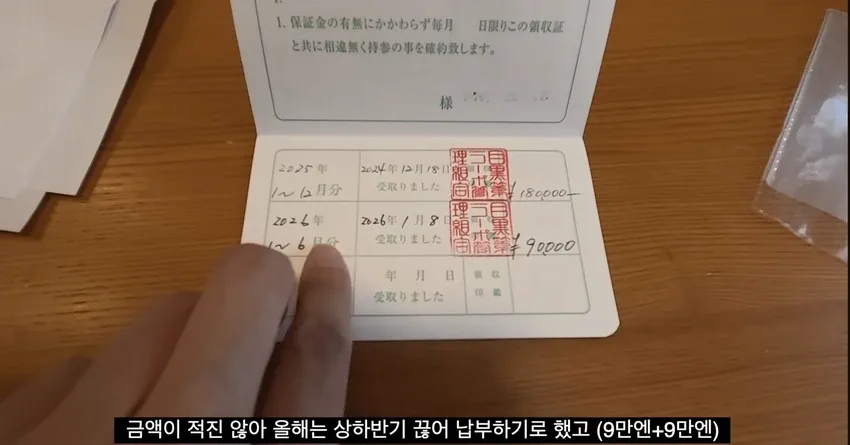 1. 保証金の有無にかかわらず毎月　　日限りこの領収証
と共に相違無く持参の事を確約致します。
様
2025年
1～12月分
2024年12月18日
受取りました
¥180,000-
2026年
1～6月分
2026年1月8日
受取りました
¥90,000
年 月 日
受取りました
領収
印鑑
금액이 적진 않아 올해는 상하반기 끊어 납부하기로 했고 (9만엔+9만엔)